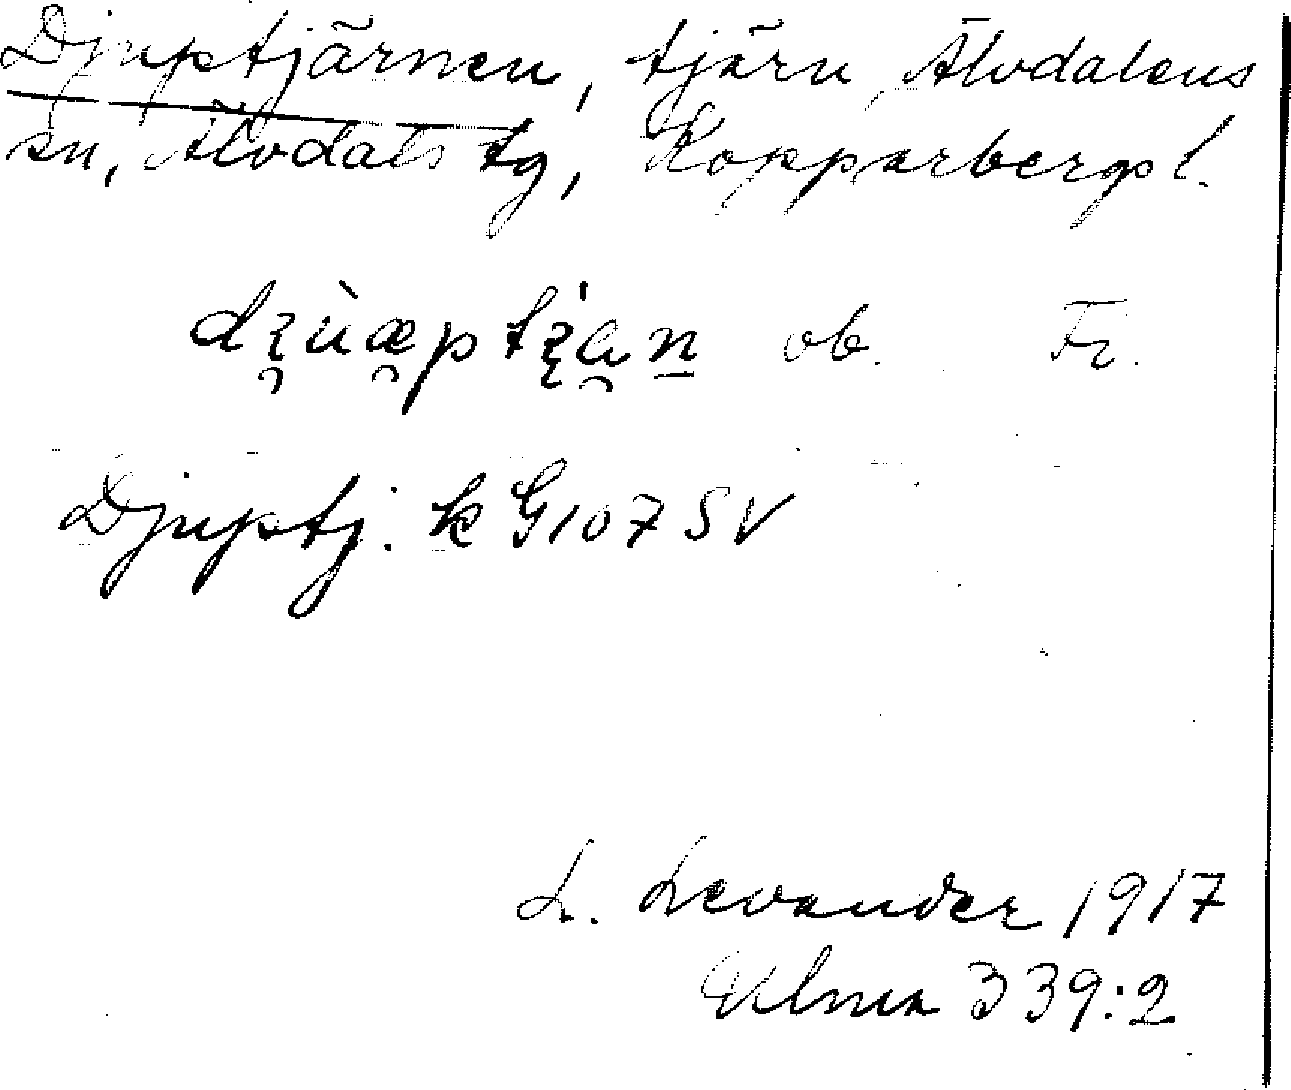 Djuptjärnen, tjärn, Älvdalens
sn, Älvdals tg, Kopparbergs l.
ob. Fr.
Djuptj. k G 107 SV
L. Levander 1917
Ulma 339:2